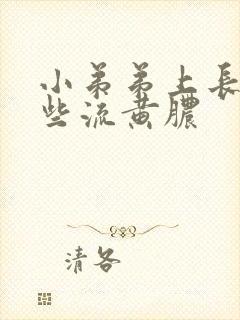 小弟弟上長
些流黄膿
清各